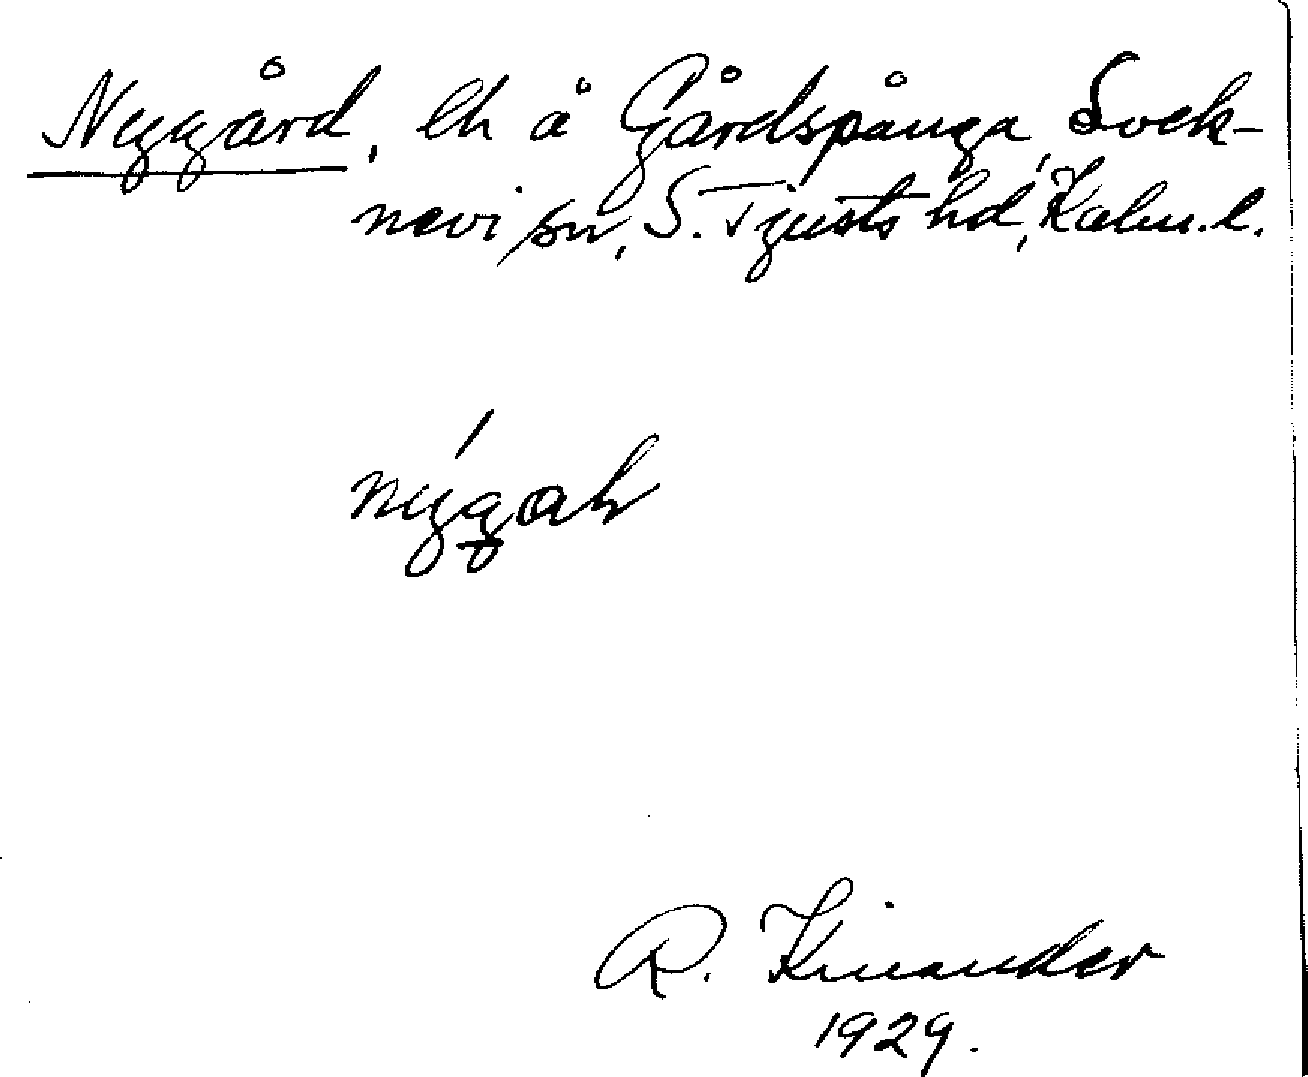 Nygård, lh å Gårdspånga, Sock-
nevi sn, S. Tjusts hd, Kalm. l.
nýgah
R. Kinander
1929.